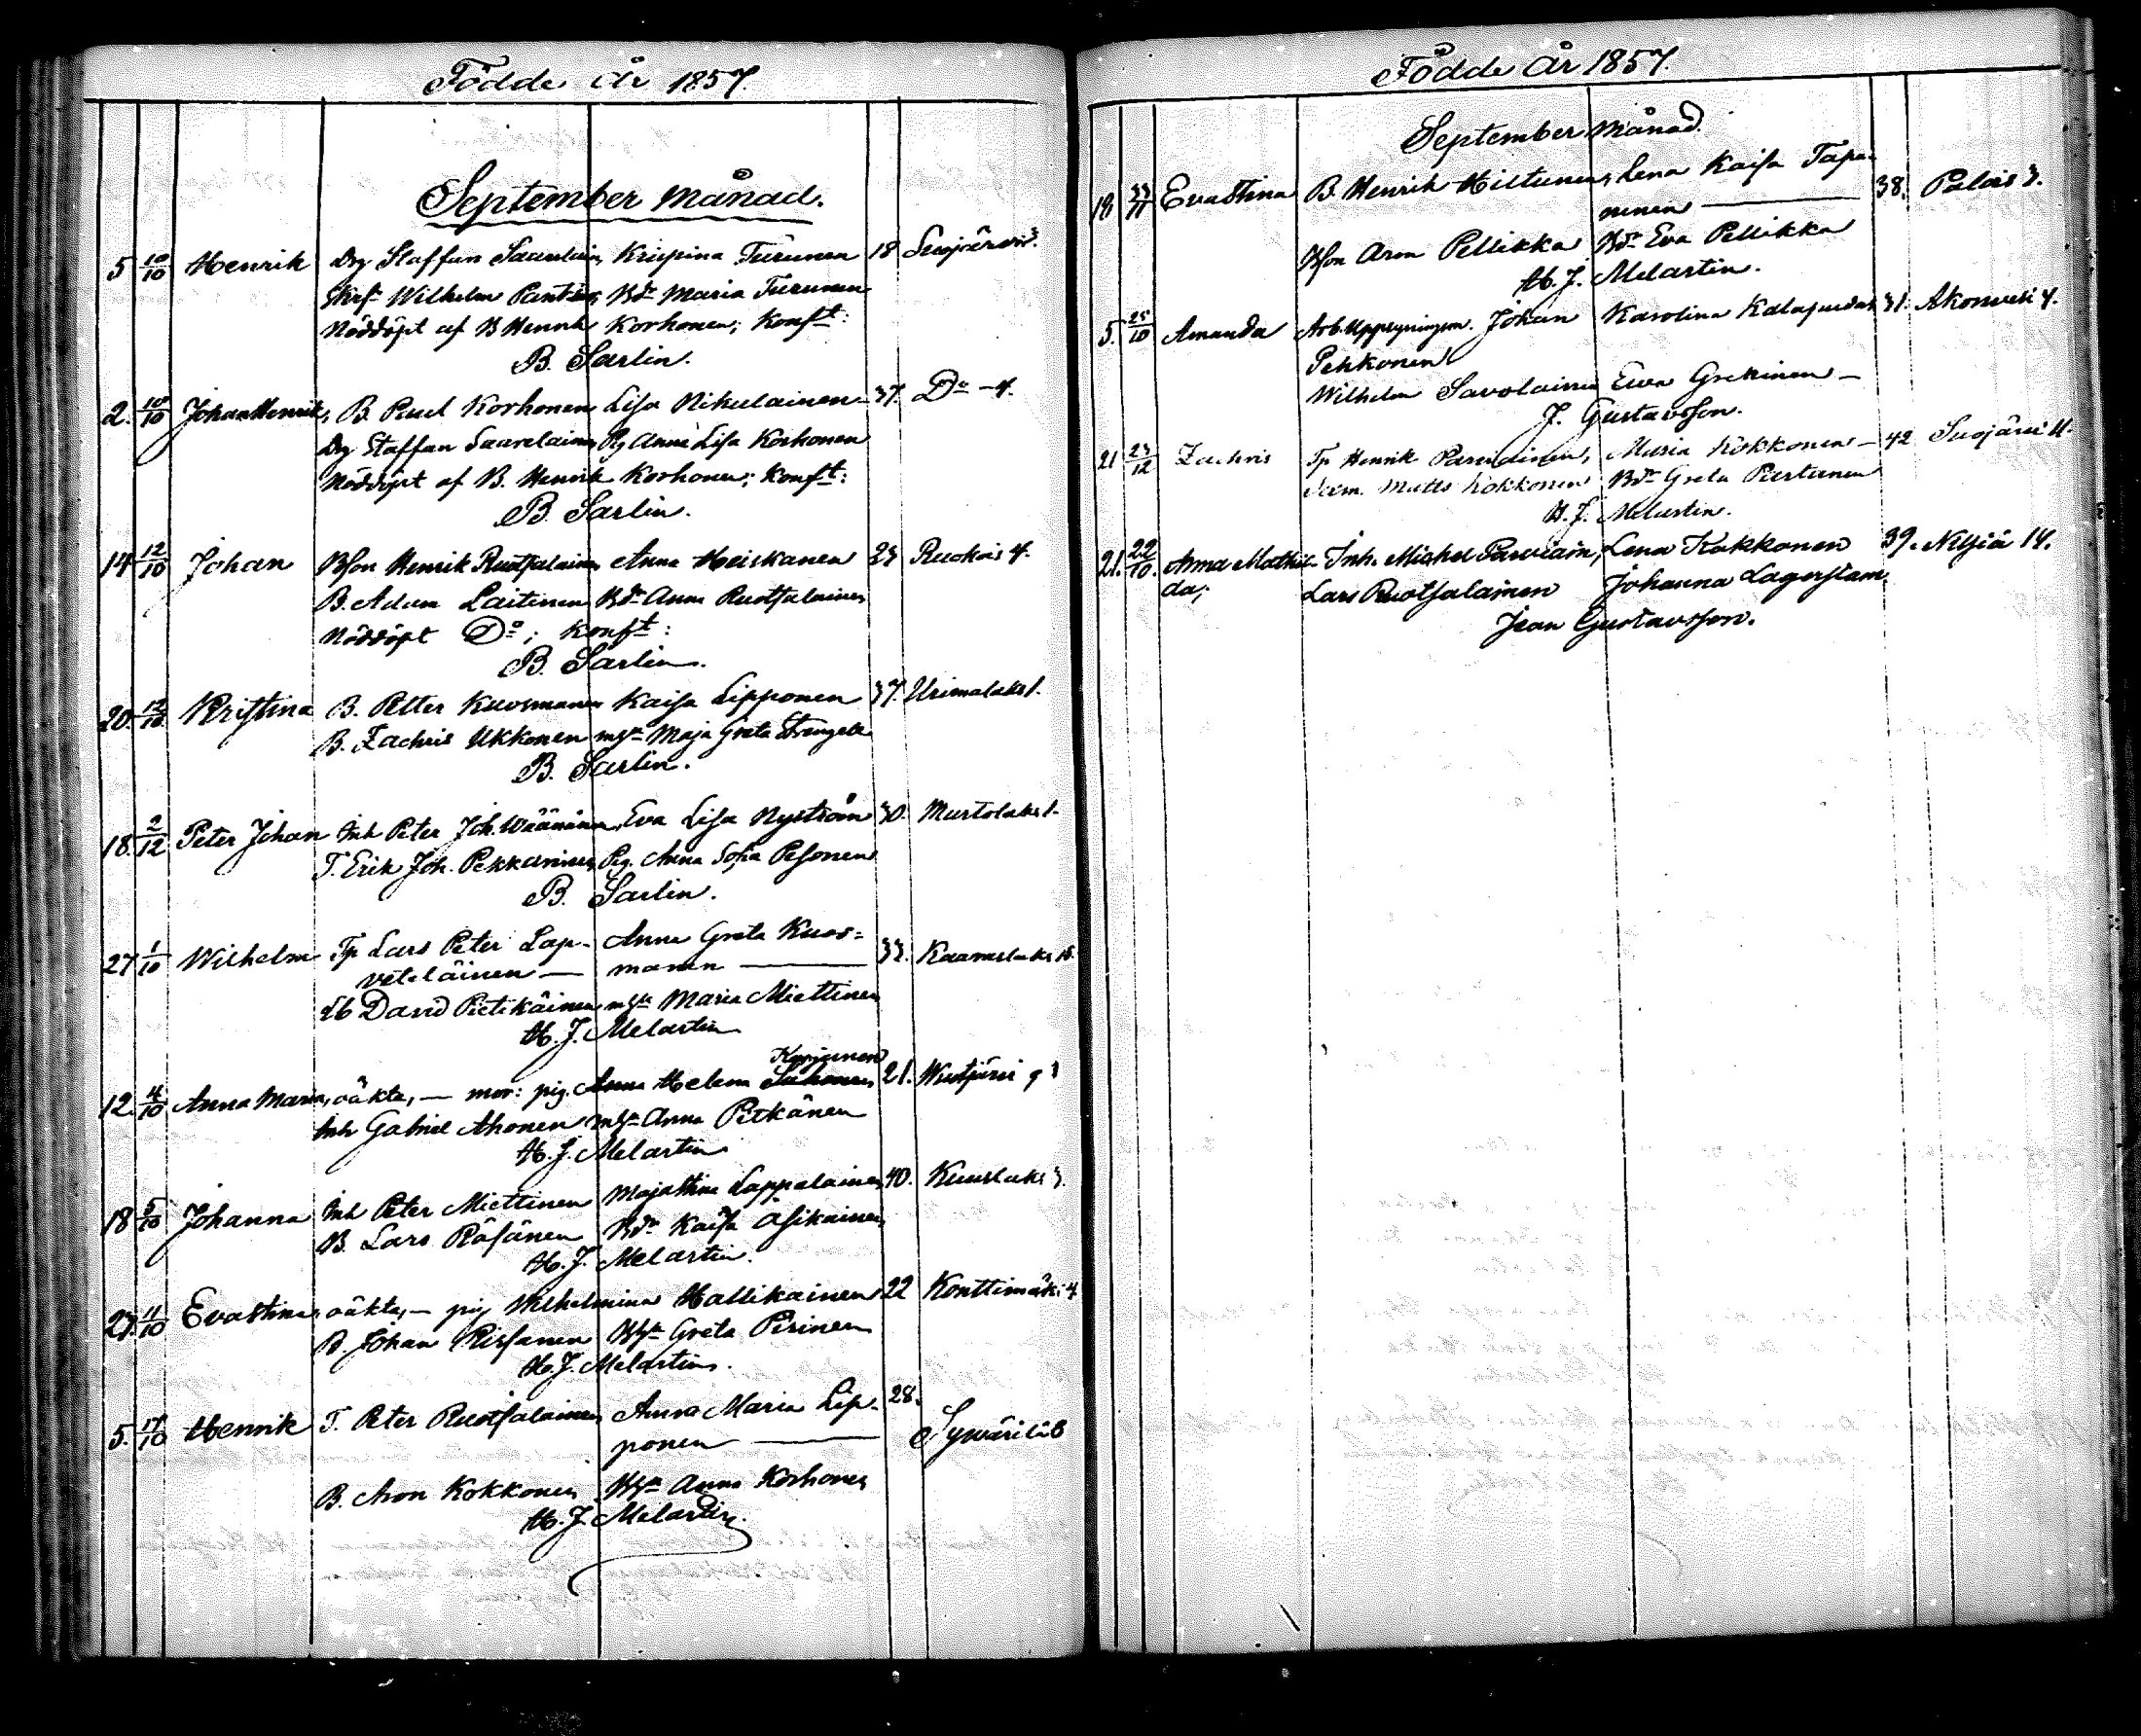 Födde år 1857.
September månad.
5 10/10 Henrik Drg Staffan Saarelain, Kristina Turunen 18 Suojärvi 3.
Wilhelm Bda Maria Turunen
Nöddöpt af B Henrik Korhonen; Konft:
B. Sarlin.
2. 10/10 Johan Henrik, B. Paul Korhonen Lisa Nikulainen 37. Do - 4.
Drg Staffan Saarelainen Pg Anna Lisa Korhonen
Nöddöpt af B. Henrik Korhonen; Konft:
B. Sarlin.
14 12/10 Johan BSon Henrik Ruotsalainen Anna Heiskanen 23 Ruokois 4.
B. Adam Laitinen Bda Anna Ruotsalainen
Nöddöpt Do; Konft:
B. Sarlin.
20. 12/10 Kristina B. Petter Kuosmanen Kaisa Lipponen 37. Urimolaks 1.
B. Zachris Ukkonen Maja Greta
B. Sarlin.
18. 2/12 Peter Johan Inh Peter Joh. Wäänänen, Eva Lisa Nyström 30. Murtolaks 1.
T. Erik Joh. Pekkarinen, Pig. Anna Sofia Pesonen
B. Sarlin.
27 1/10 Wilhelm Tp Lars Peter Lap- Anna Greta Kuos= 33. Kaaraslaks 15.
veteläinen — manen —
David Pietikäinen Maria Miettinen
H. J. Melartin
Korjonen
12. 4/10 Anna Maria, oäkta, — mor: pig. Anna Helena 21. Wuotjärvi 9
Inh Gabriel Ahonen Anna Pitkänen
H. J. Melartin
18 5/10 Johanna Inh Peter Miettinen Majastina Lappalainen 40. Kuuslaks 3.
B. Lars Räsänen Bda Kaisa Asikainen
H. J. Melartin.
27. 11/10 Evastina, oäkta, — pig Wilhelmina Hallikainen 22 Konttimäki 4
B. Johan Rissanen Greta Pirinen
H. J. Melartin.
5. 17/10 Henrik T. Peter Ruotsalainen Anna Maria Lip- 28.
ponen — Sywäri 6
B. Aron Kokkonen Anna Korhonen
H. J. Melartin.
Födde År 1857.
September månad.
18 Evastina B. Henrik Hiltunen, Lena Kaisa Tapa- 38. Palois 3.
ninen —
BSon Aron Pellikka Bda Eva Pellikka
H. J. Melartin.
5. 25/10 Amanda Arb. Uppsyningsm. Johan Karolina 31. Akonvesi 4.
Pekkonen
Wilhelm Savolainen Ewa Grekinen —
J. Gustavsson.
21 23/12 Zachris Tp Henrik Parviainen, Maria Kokkonen — 42 Suojärvi 11.
Matts Kokkonen Bda Greta Partanen
H. J. Melartin.
21. 22/10. Anna Mathil- Inh. Michel Parviain, Lena Kokkonen 39. Nilsiä 14.
da; Lars Ruotsalainen Johanna Lagerstam
Jean Gustavsson.